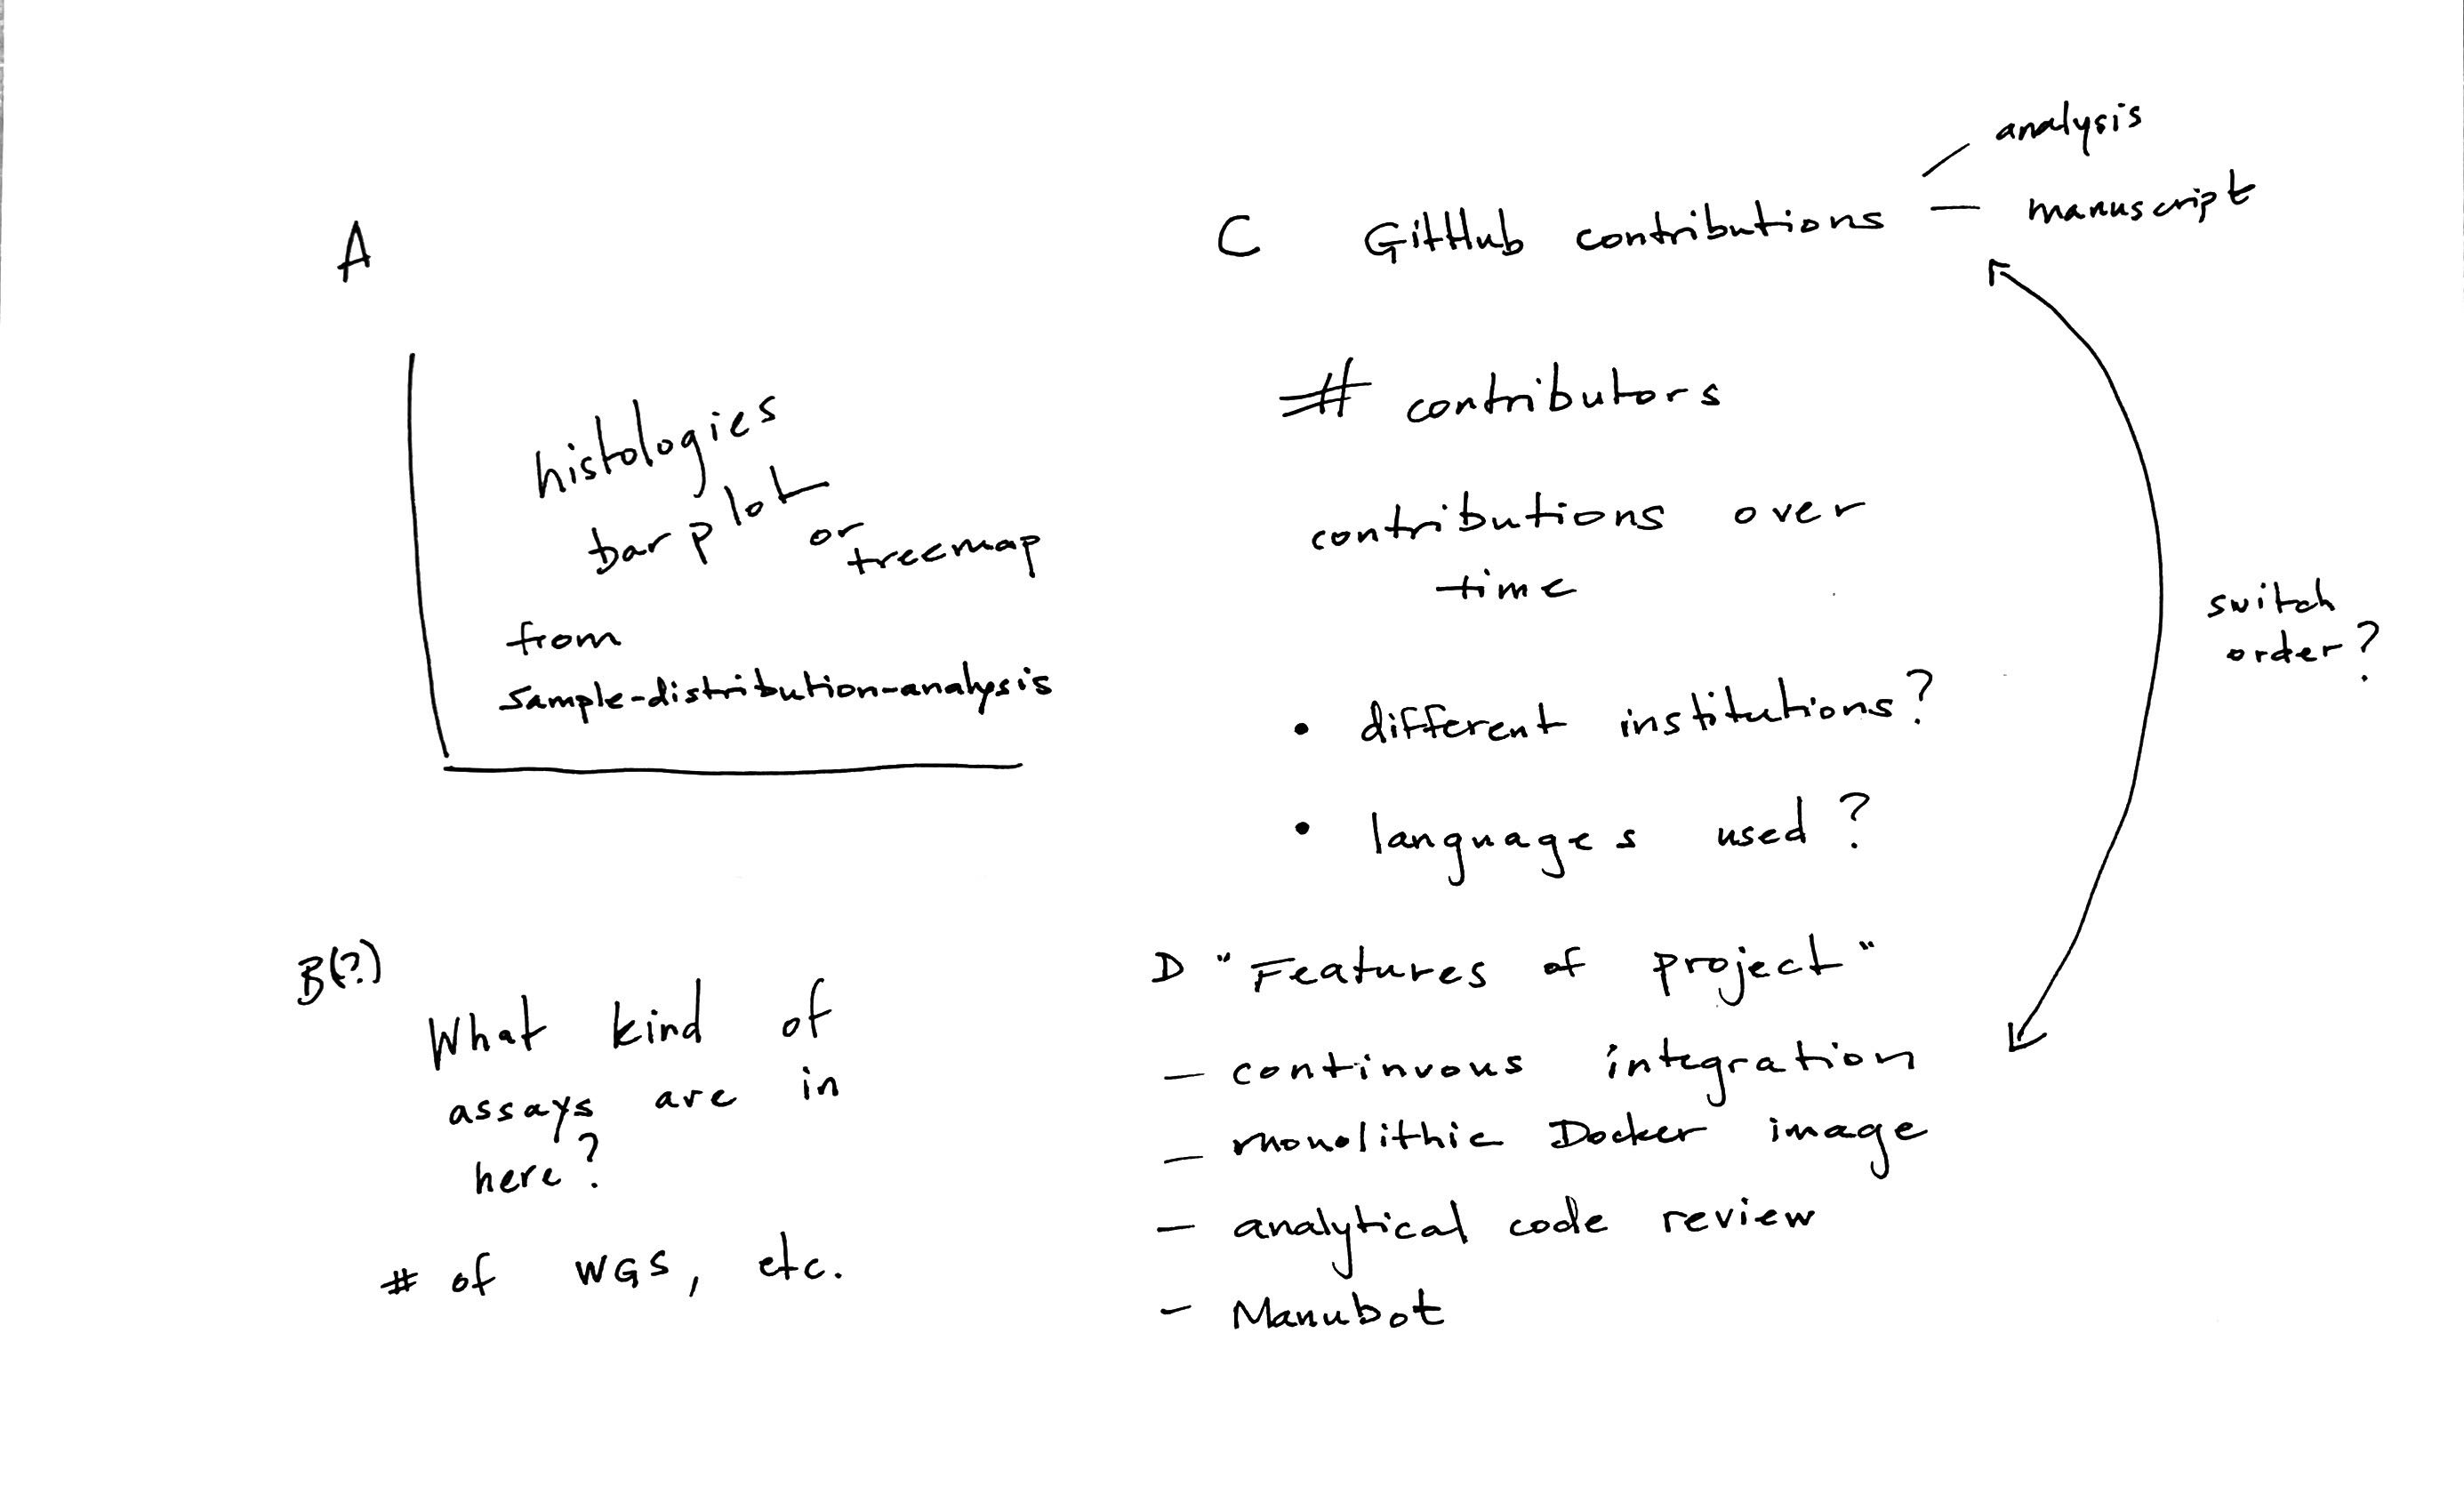 A
histologies
bar plot
or
treemap
from
sample-distribution-analysis
B(?)
What kind of
assays are in
here?
# of WGS, etc.
C GitHub contributions
analysis
— manuscript
# contributors
contributions over
time
• different institutions?
• languages used?
switch
order?
D "Features of project"
— continuous integration
— monolithic Docker image
— analytical code review
— Manubot